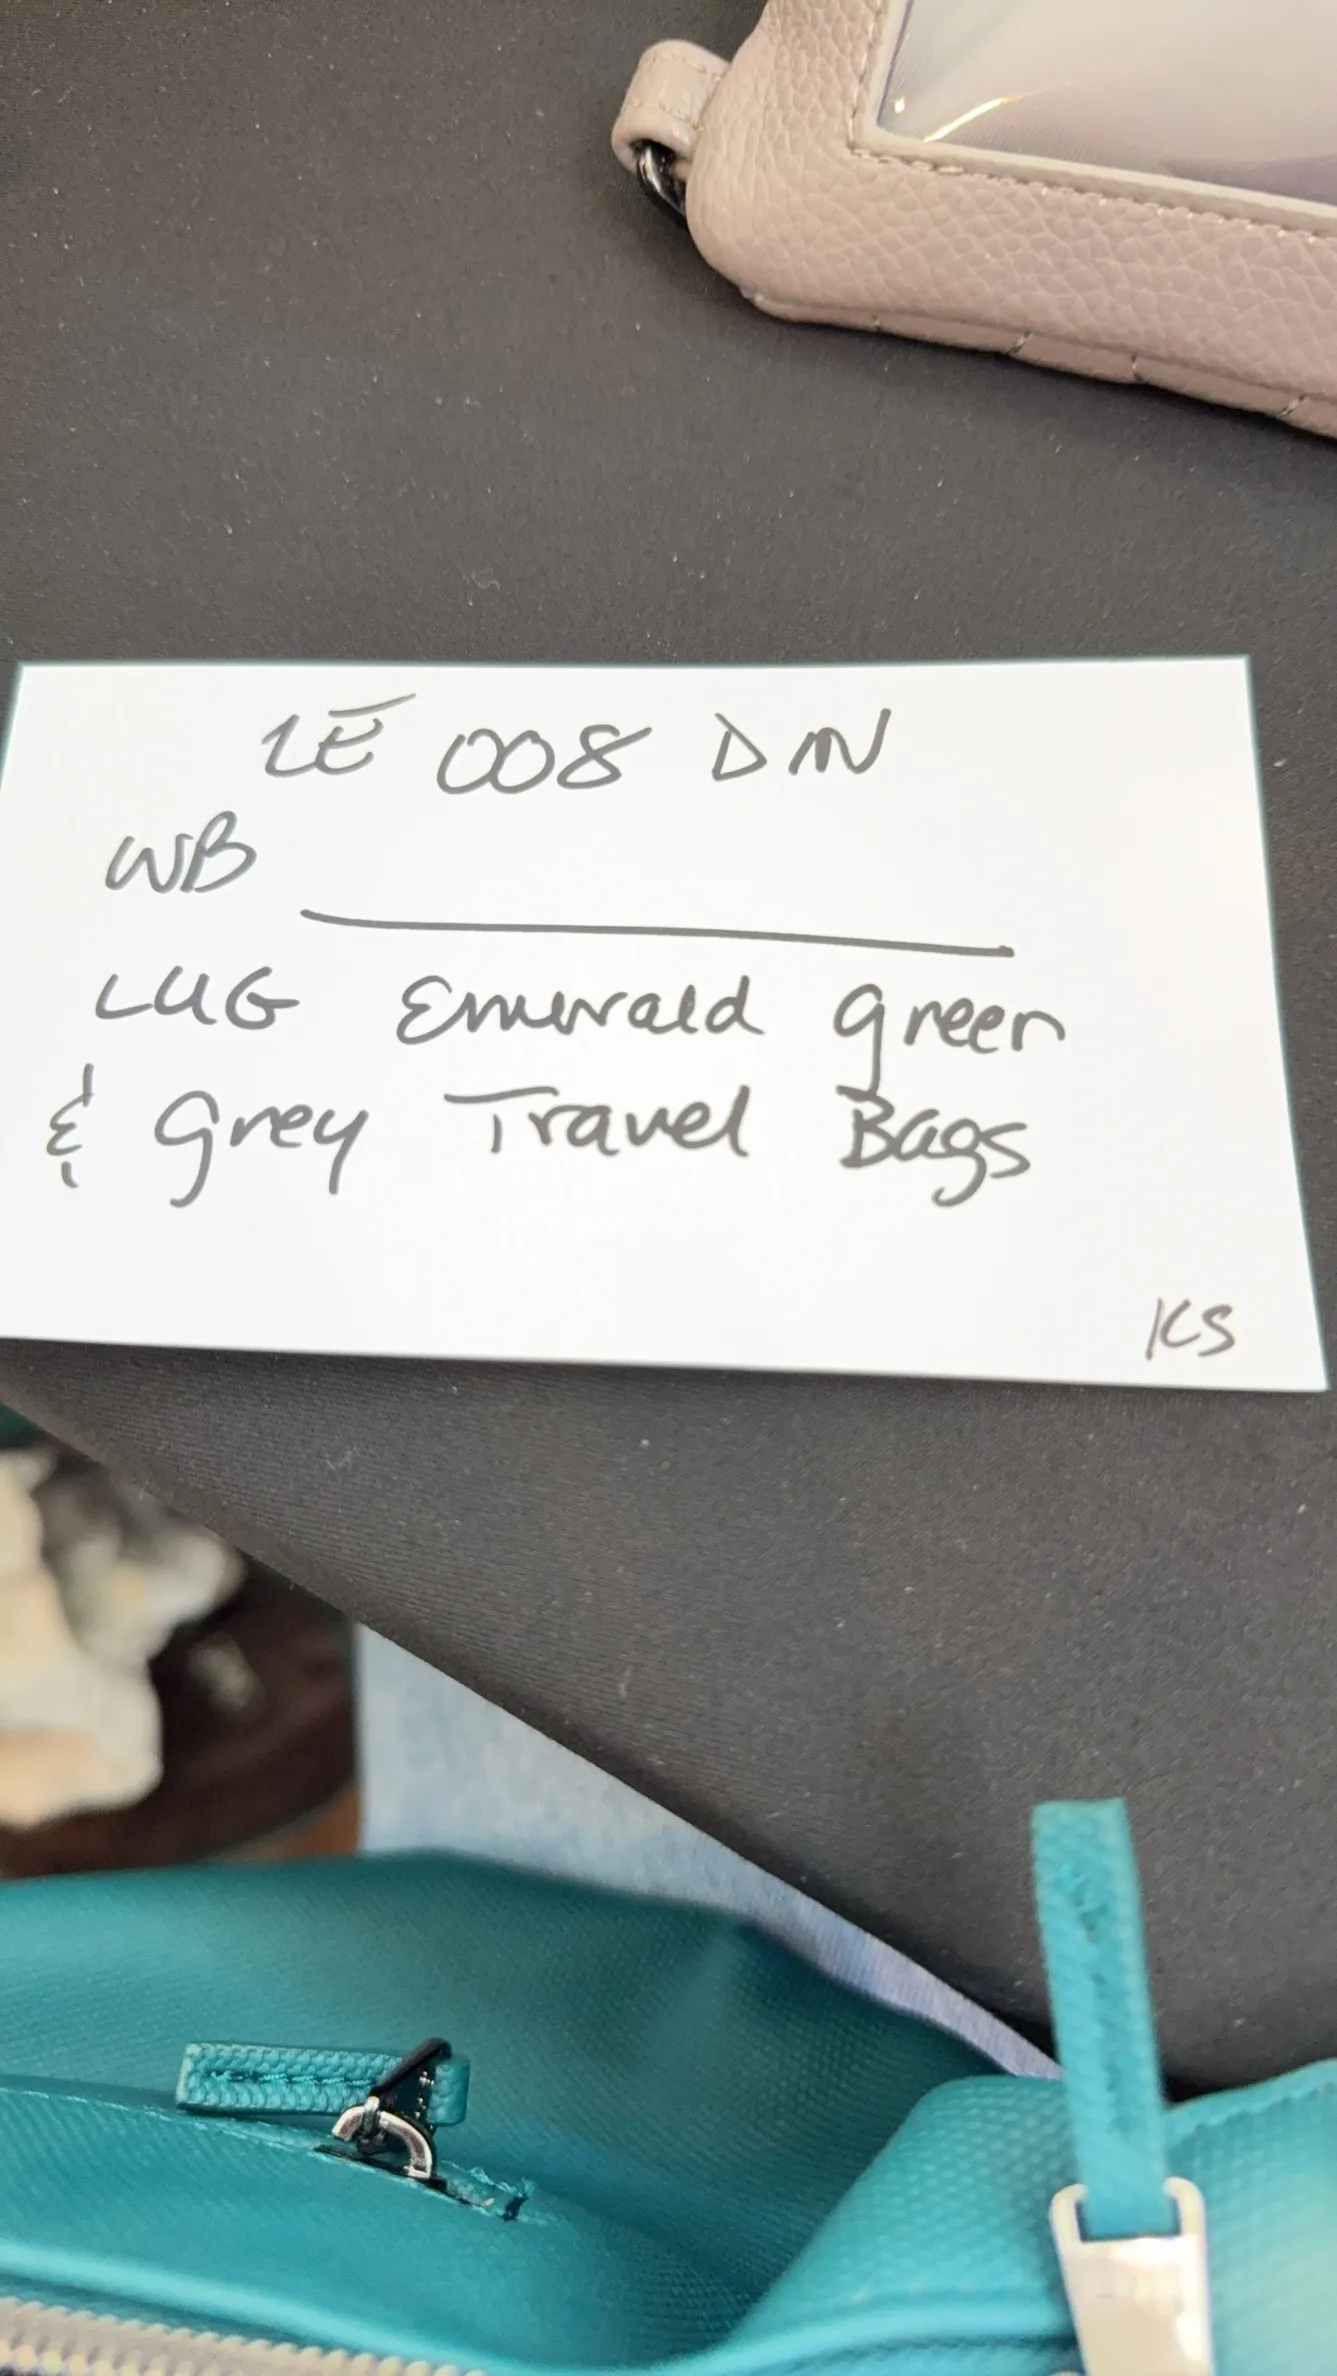 LE 008 DMN
WB
LUG Emerald green
& Grey Travel Bags
KS